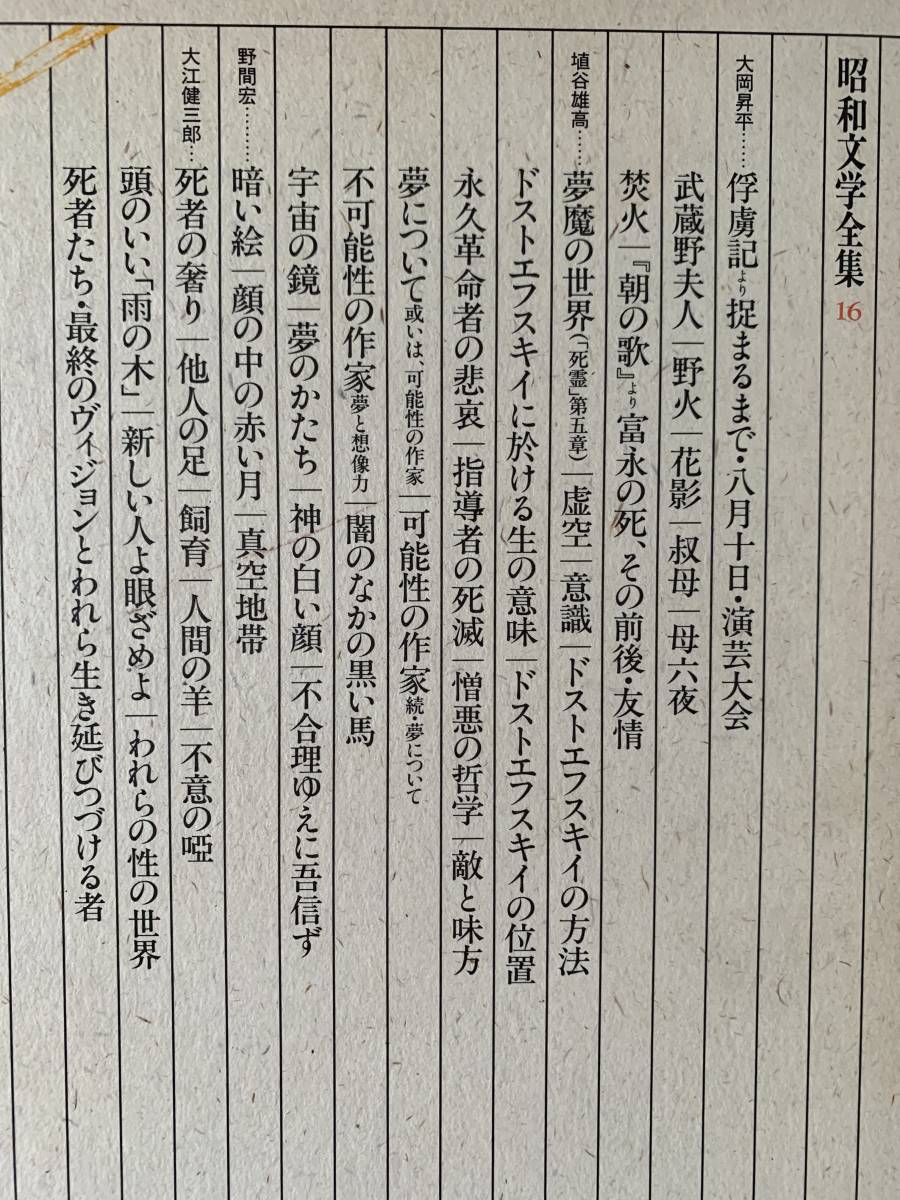 昭和文学全集 16
大岡昇平……俘虜記より 捉まるまで・八月十日・演芸大会
武蔵野夫人｜野火｜花影｜叔母｜母六夜
焚火｜『朝の歌』より 富永の死、その前後・友情
埴谷雄高……夢魔の世界(「死霊」第五章)｜虚空｜意識｜ドストエフスキイの方法
ドストエフスキイに於ける生の意味｜ドストエフスキイの位置
永久革命者の悲哀｜指導者の死滅｜憎悪の哲学｜敵と味方
夢について 或いは、可能性の作家｜可能性の作家 続・夢について
不可能性の作家 夢と想像力｜闇のなかの黒い馬
宇宙の鏡｜夢のかたち｜神の白い顔｜不合理ゆえに吾信ず
野間宏………暗い絵｜顔の中の赤い月｜真空地帯
大江健三郎…死者の奢り｜他人の足｜飼育｜人間の羊｜不意の啞
頭のいい「雨の木」｜新しい人よ眼ざめよ｜われらの性の世界
死者たち・最終のヴィジョンとわれら生き延びつづける者